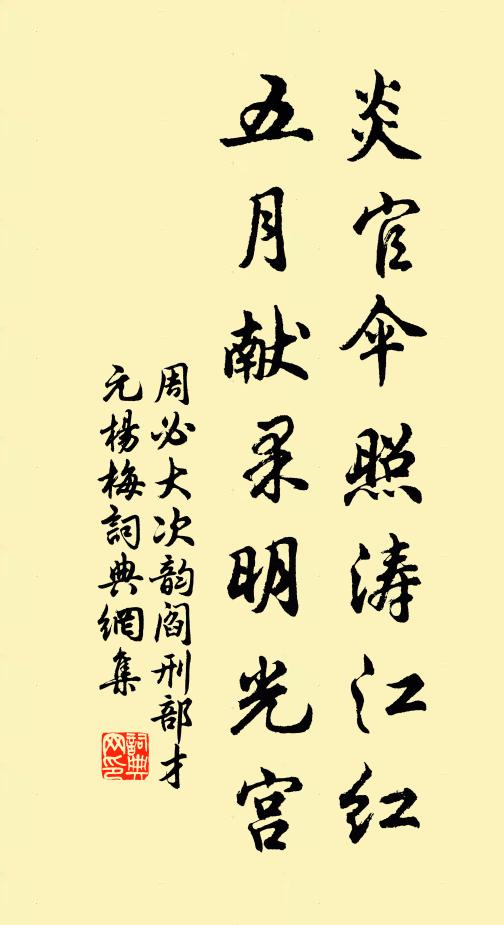 炎官伞照涛江红
五月献果明光宫
周必大次韵阎刑部才
元楊梅詞典網集
詞典
网印